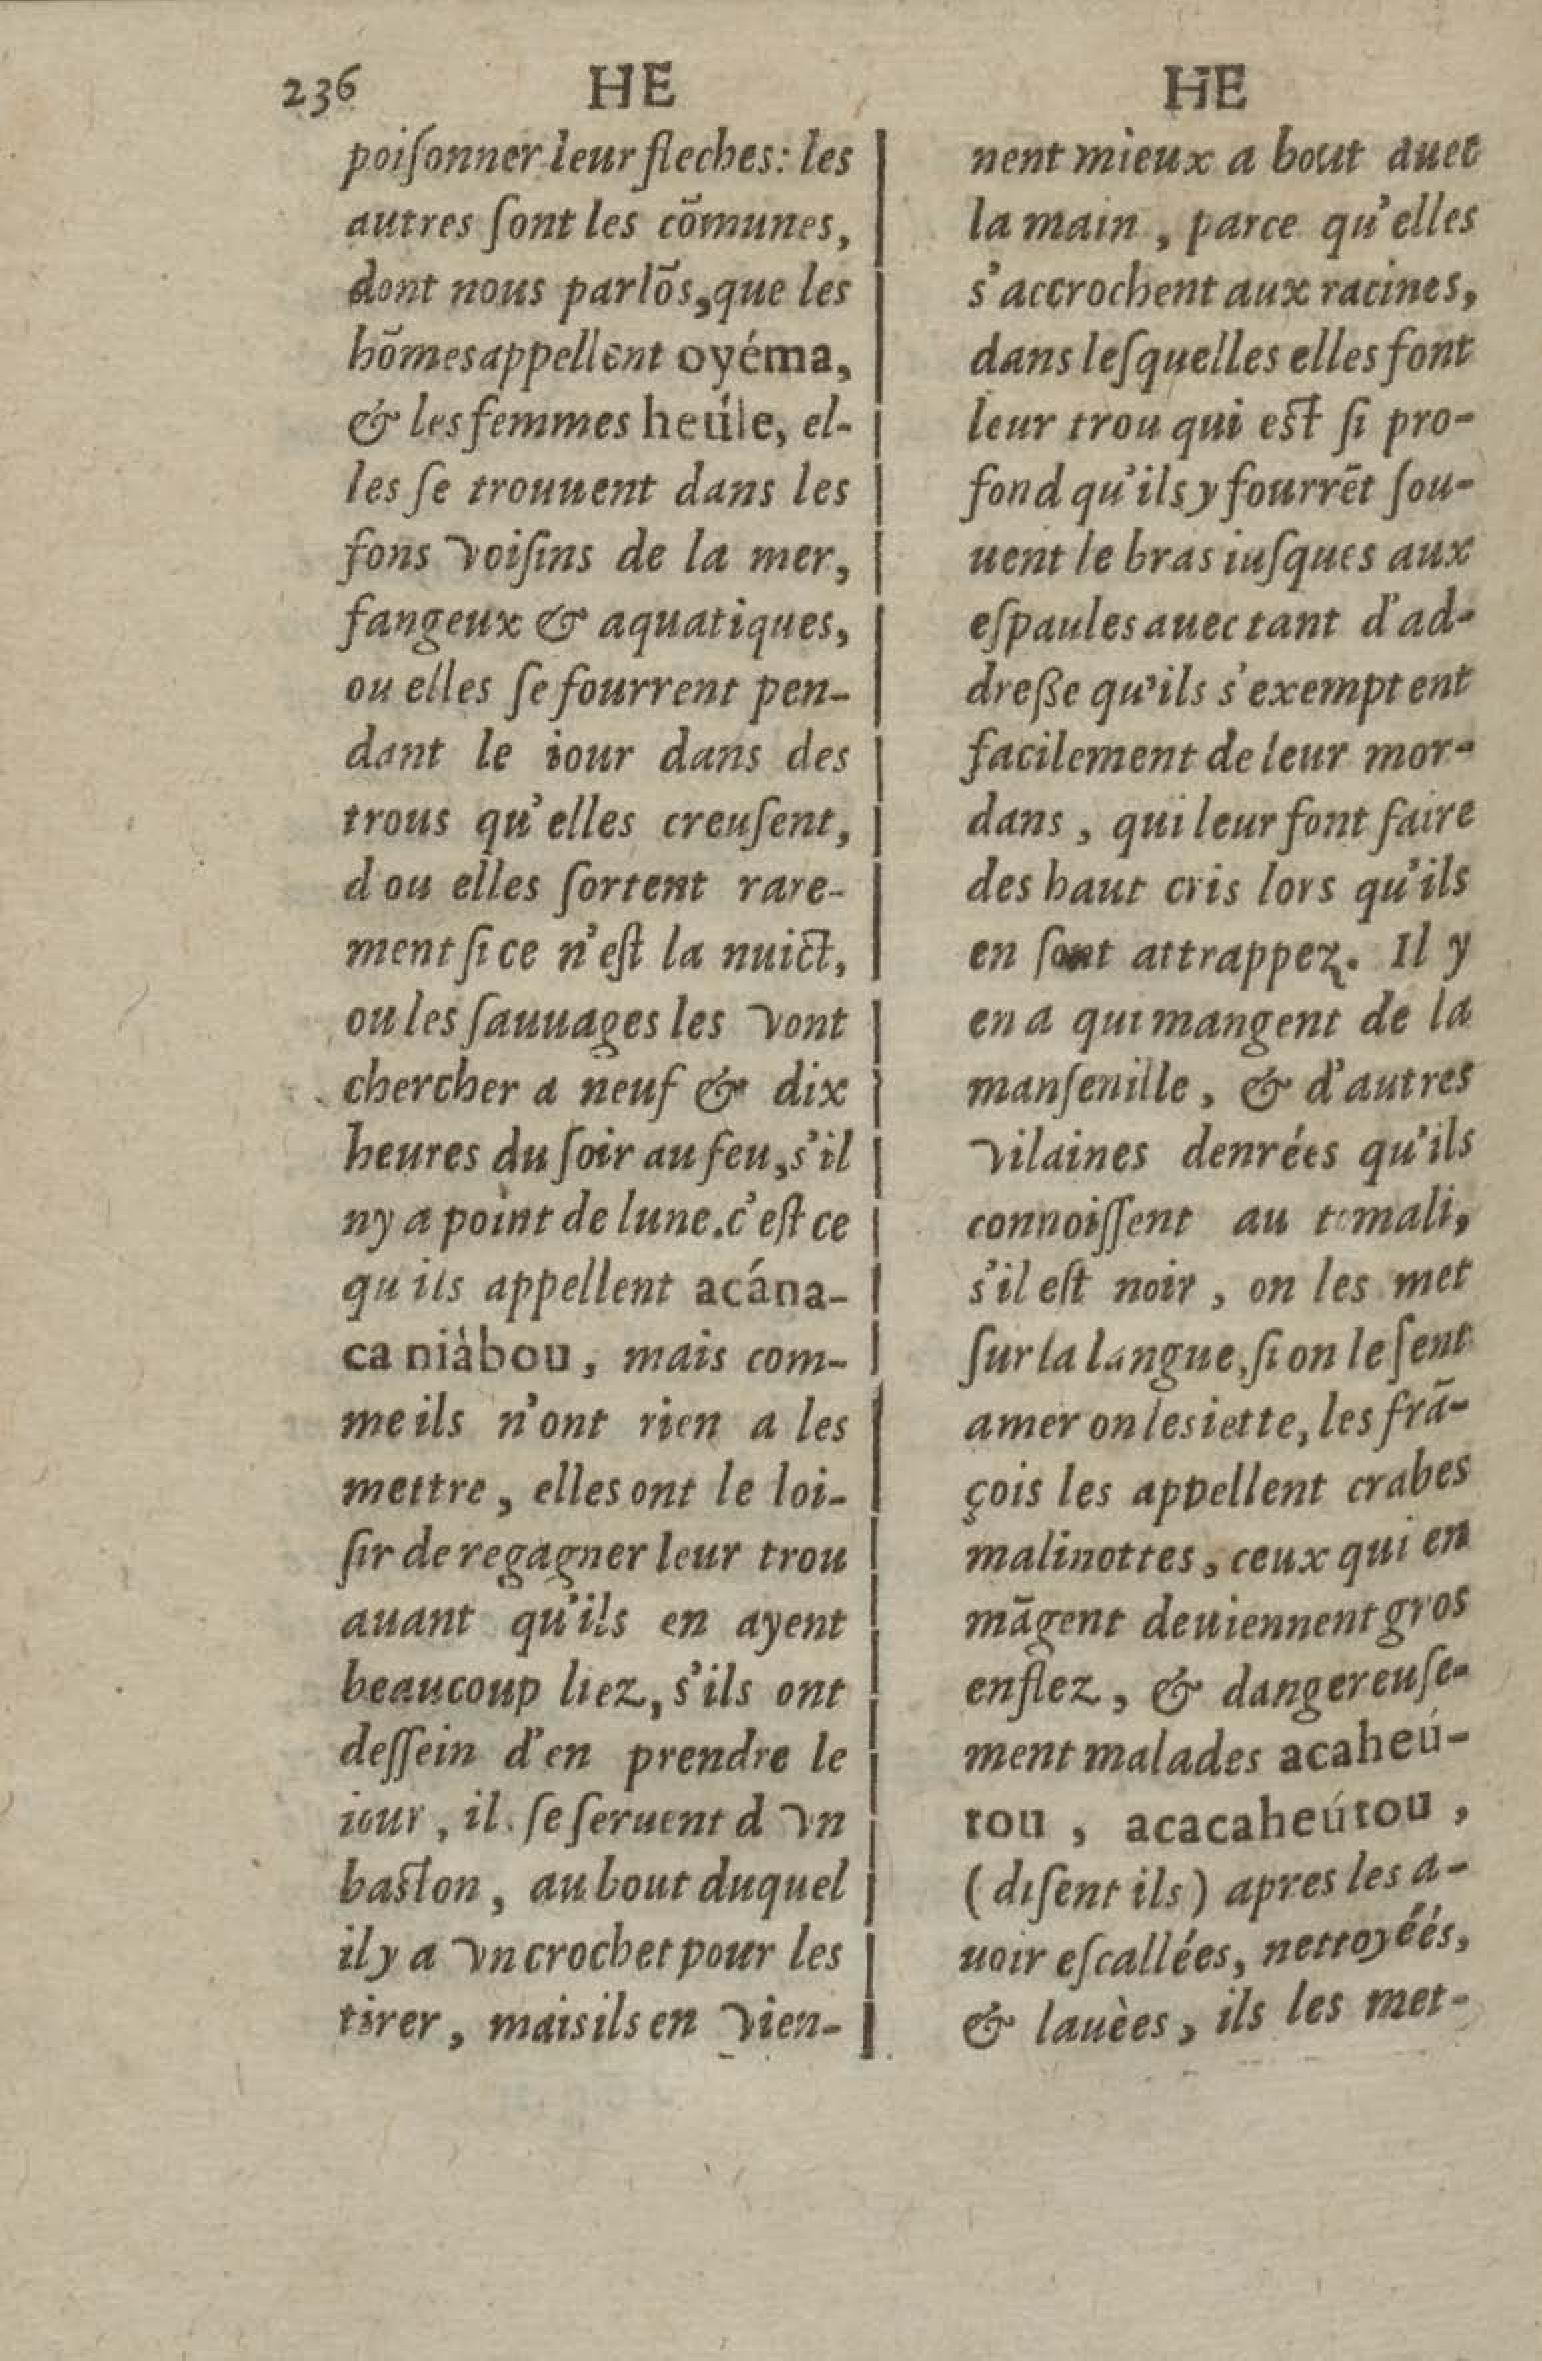 236 HE HE
poiſonner leur fleches: les
autres ſont les cõmunes,
dont nous parlõs, que les
hõmes appellent oyéma,
& les femmes heúle, el-
les ſe trouuent dans les
fons voiſins de la mer,
fangeux & aquatiques,
ou elles ſe fourrent pen-
dant le iour dans des
trous qu'elles creuſent,
d ou elles ſortent rare-
ment ſi ce n'eſt la nuict,
ou les ſauuages les vont
chercher a neuf & dix
heures du ſoir au feu, s'il
ny a point de lune. c'eſt ce
qu ils appellent acána-
ca niàbou, mais com-
me ils n'ont rien a les
mettre, elles ont le loi-
ſir de regagner leur trou
auant qu'ils en ayent
beaucoup liez, s'ils ont
deſſein d'en prendre le
iour, il. ſe ſeruent d vn
baſton, au bout duquel
il y a vn crochet pour les
tirer, mais ils en vien-
nent mieux a bout auec
la main, parce qu'elles
s'accrochent aux racines,
dans leſquelles elles font
leur trou qui eſt ſi pro-
fond qu'ils y fourrẽt ſou-
uent le bras iuſques aux
eſpaules auec tant d'ad-
dreſſe qu'ils s'exemptent
facilement de leur mor-
dans, qui leur font faire
des haut cris lors qu'ils
en ſont attrappez. Il y
en a qui mangent de la
manſenille, & d'autres
vilaines denrées qu'ils
connoiſſent au tomali,
s'il eſt noir, on les met
ſur la langue, ſi on le ſent
amer on les iette, les frã-
çois les appellent crabes
malinottes, ceux qui en
mãgent deuiennent gros
enflez, & dangereuſe-
ment malades acaheú-
tou, acacaheútou,
(diſent ils) apres les a-
uoir eſcallées, nettoyéés,
& lauèes, ils les met-